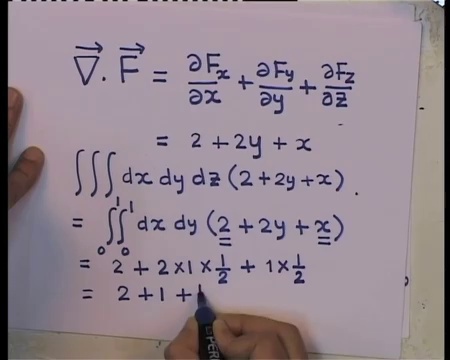 ∇⃗ . F⃗ = ∂Fx/∂x + ∂Fy/∂y + ∂Fz/∂z
= 2 + 2y + x
∫∫∫ dx dy dz (2 + 2y + x).
= ∫₀¹∫₀¹ dx dy (2 + 2y + x)
= 2 + 2×1×1/2 + 1×1/2
= 2 + 1 +